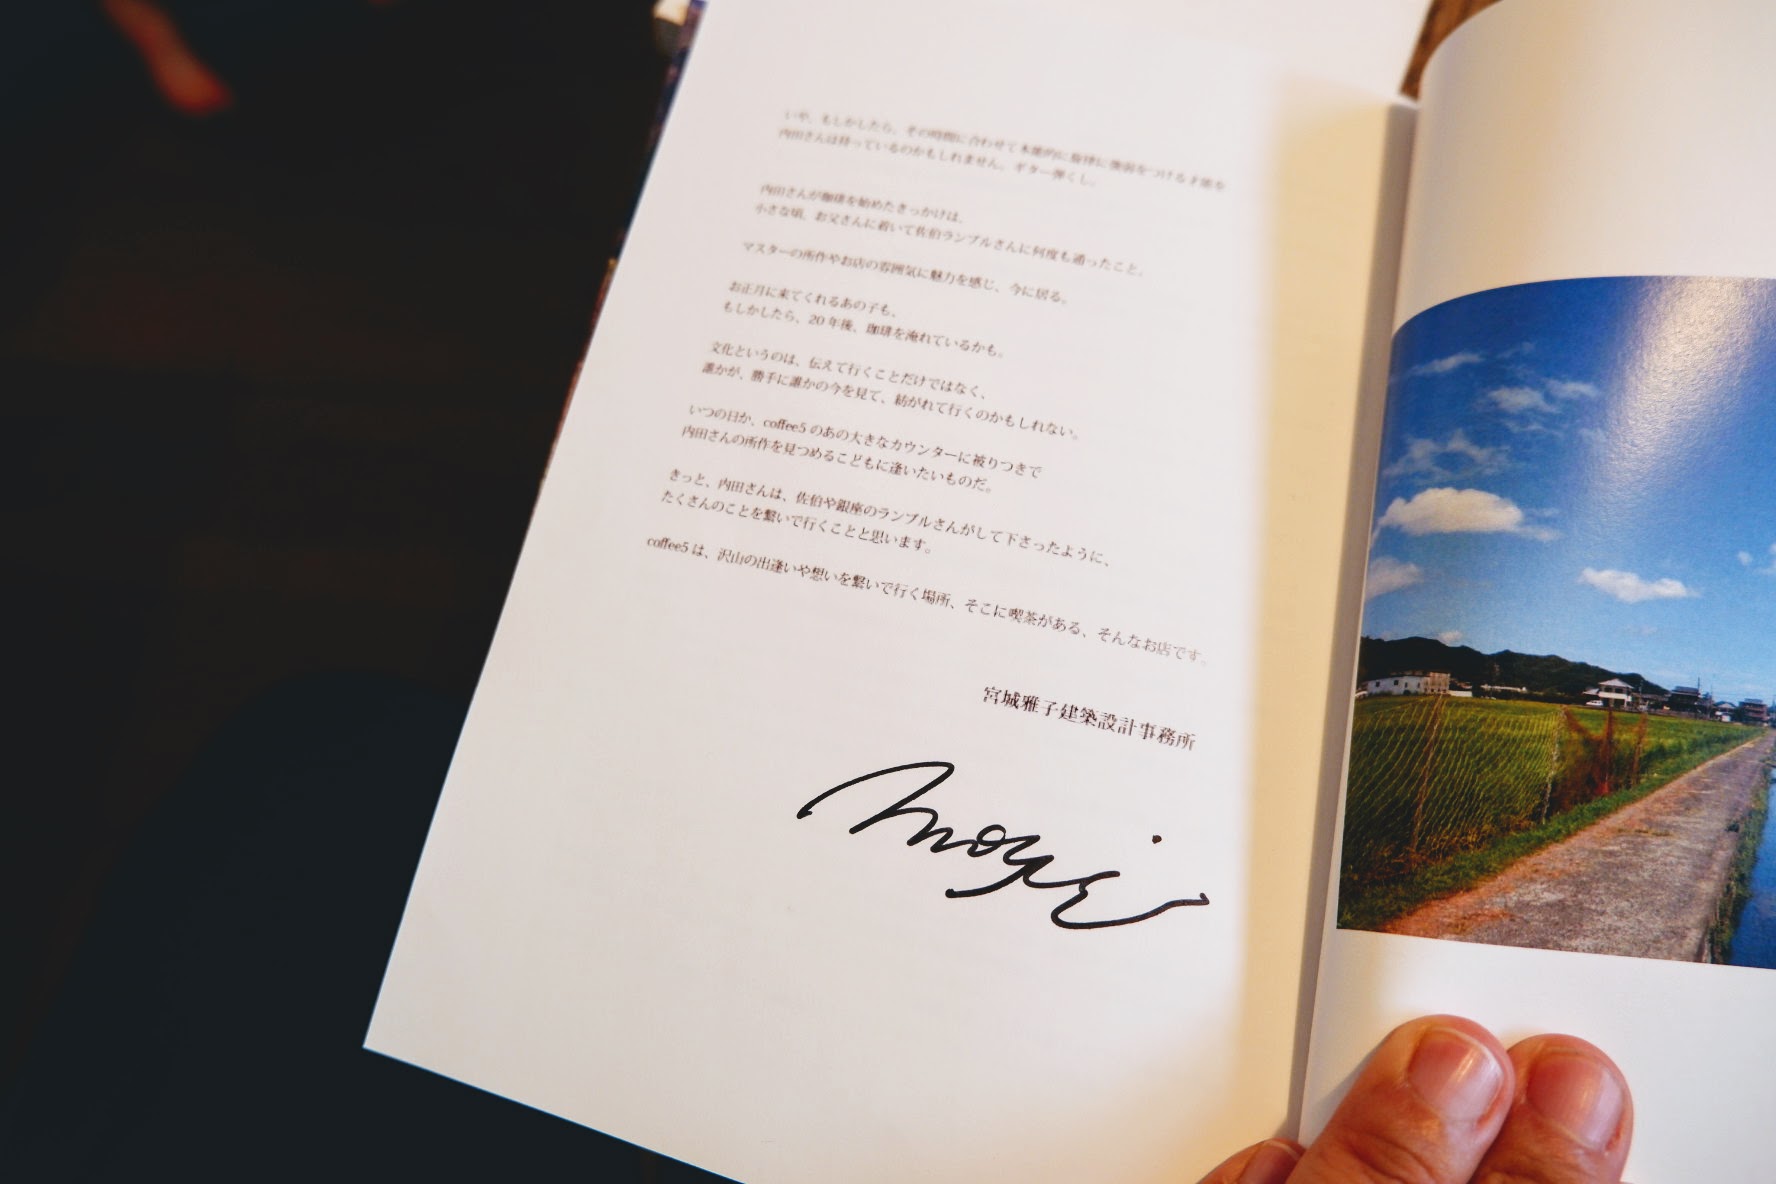 いや、もしかしたら、その時間に合わせて本能的に旋律に強弱をつける才能を
内田さんは持っているのかもしれません。ギター弾くし。
内田さんが珈琲を始めたきっかけは、
小さな頃、お父さんに着いて佐伯ランブルさんに何度も通ったこと。
マスターの所作やお店の雰囲気に魅力を感じ、今に居る。
お正月に来てくれるあの子も、
もしかしたら、20年後、珈琲を淹れているかも。
文化というのは、伝えて行くことだけではなく、
誰かが、勝手に誰かの今を見て、紡がれて行くのかもしれない。
いつの日か、coffee5のあの大きなカウンターに被りつきで
内田さんの所作を見つめるこどもに逢いたいものだ。
きっと、内田さんは、佐伯や銀座のランブルさんがして下さったように、
たくさんのことを繋いで行くことと思います。
coffee5は、沢山の出逢いや想いを繋いで行く場所、そこに喫茶がある、そんなお店です。
宮城雅子建築設計事務所